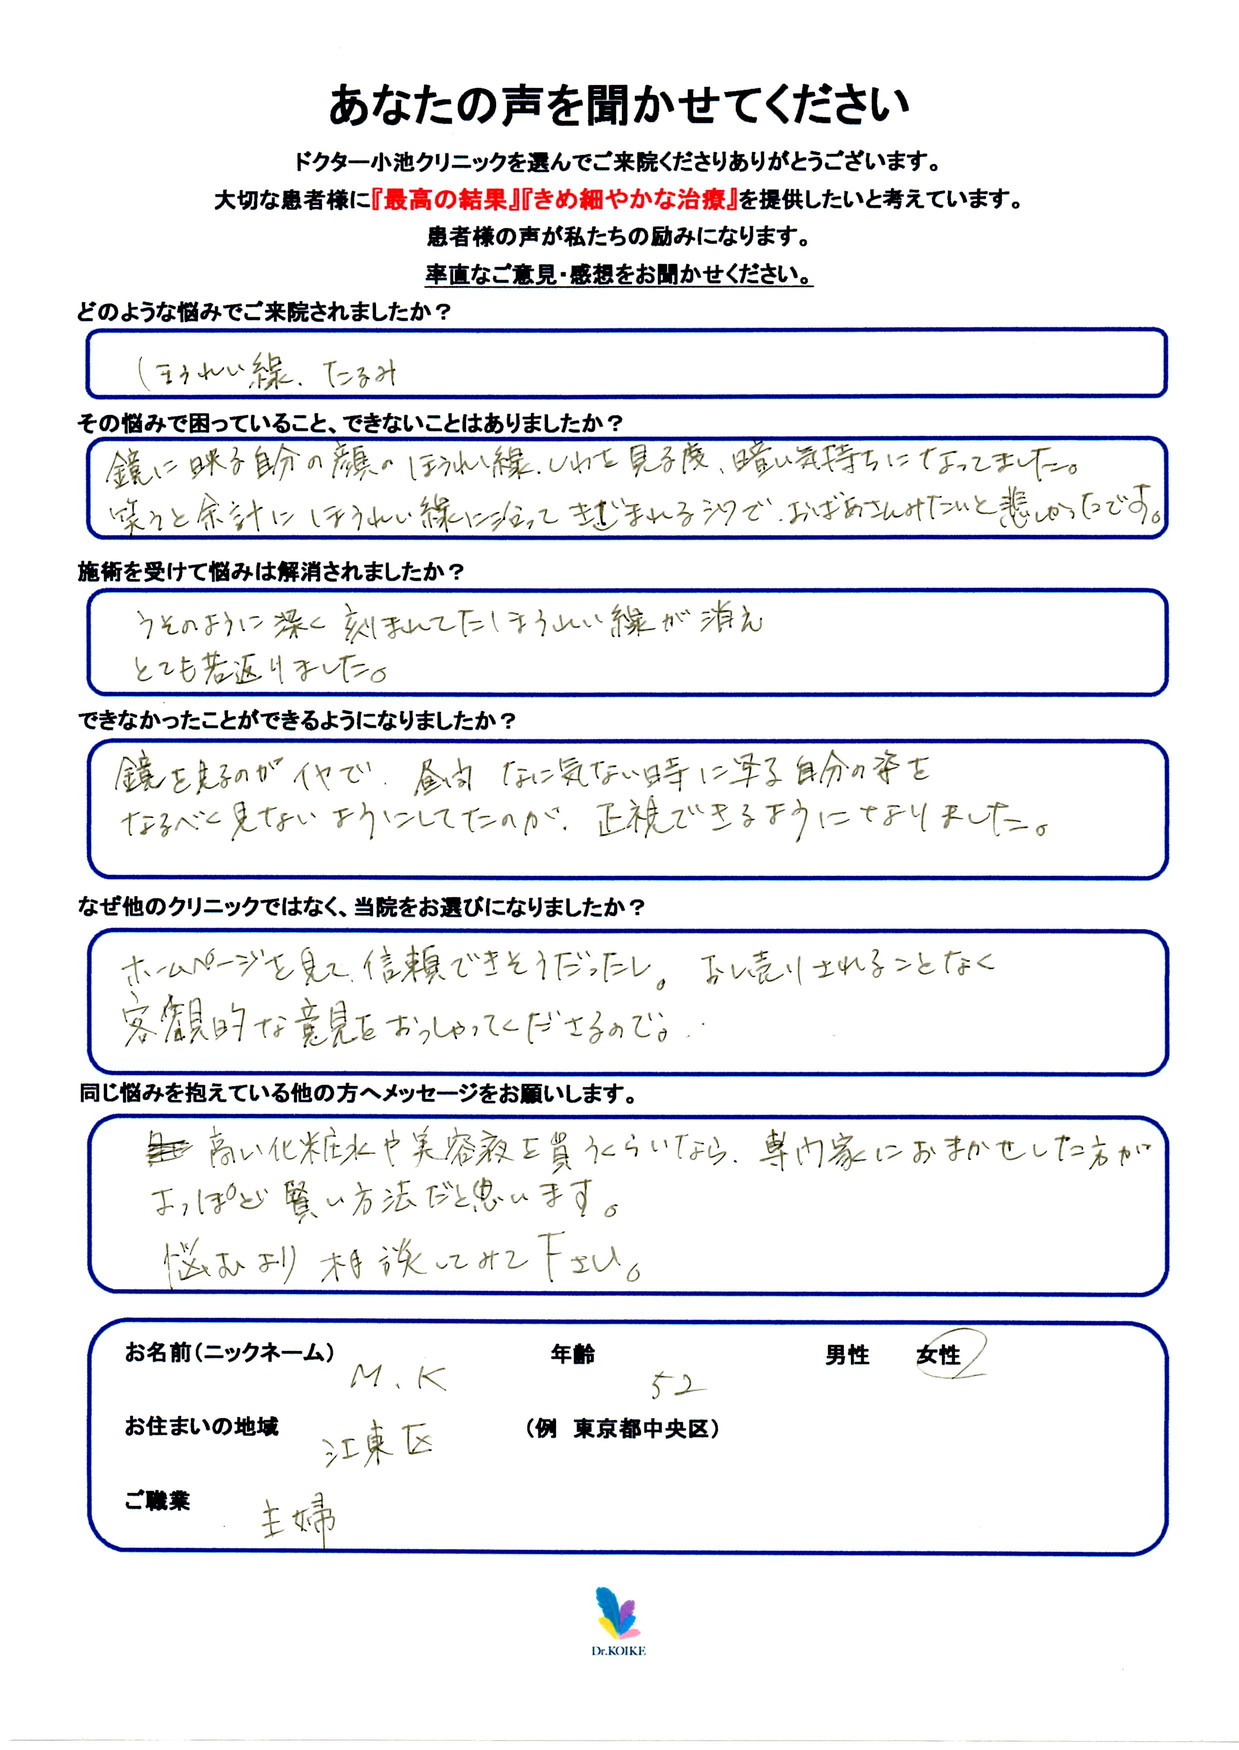 あなたの声を聞かせてください
ドクター小池クリニックを選んでご来院くださりありがとうございます。
大切な患者様に『最高の結果』『きめ細やかな治療』を提供したいと考えています。
患者様の声が私たちの励みになります。
率直なご意見・感想をお聞かせください。
どのような悩みでご来院されましたか？
ほうれい線、たるみ
その悩みで困っていること、できないことはありましたか？
鏡に映る自分の顔のほうれい線、しわを見る度、暗い気持ちになってました。
笑うと余計にほうれい線に沿ってきざまれるシワで、おばあさんみたいと悲しかったです。
施術を受けて悩みは解消されましたか？
うそのように深く刻まれてたほうれい線が消え
とても若返りました。
できなかったことができるようになりましたか？
鏡を見るのがイヤで、昼間なに気ない時に写る自分の姿を
なるべく見ないようにしてたのが、正視できるようになりました。
なぜ他のクリニックではなく、当院をお選びになりましたか？
ホームページを見て、信頼できそうだったし。おし売りされることなく
客観的な意見をおっしゃってくださるので。
同じ悩みを抱えている他の方へメッセージをお願いします。
高い化粧水や美容液を買うくらいなら、専門家におまかせした方が
よっぽど賢い方法だと思います。
悩むより相談してみて下さい。
お名前（ニックネーム） M.K 年齢 52 男性 女性
お住まいの地域 江東区 （例 東京都中央区）
ご職業 主婦
Dr.KOIKE